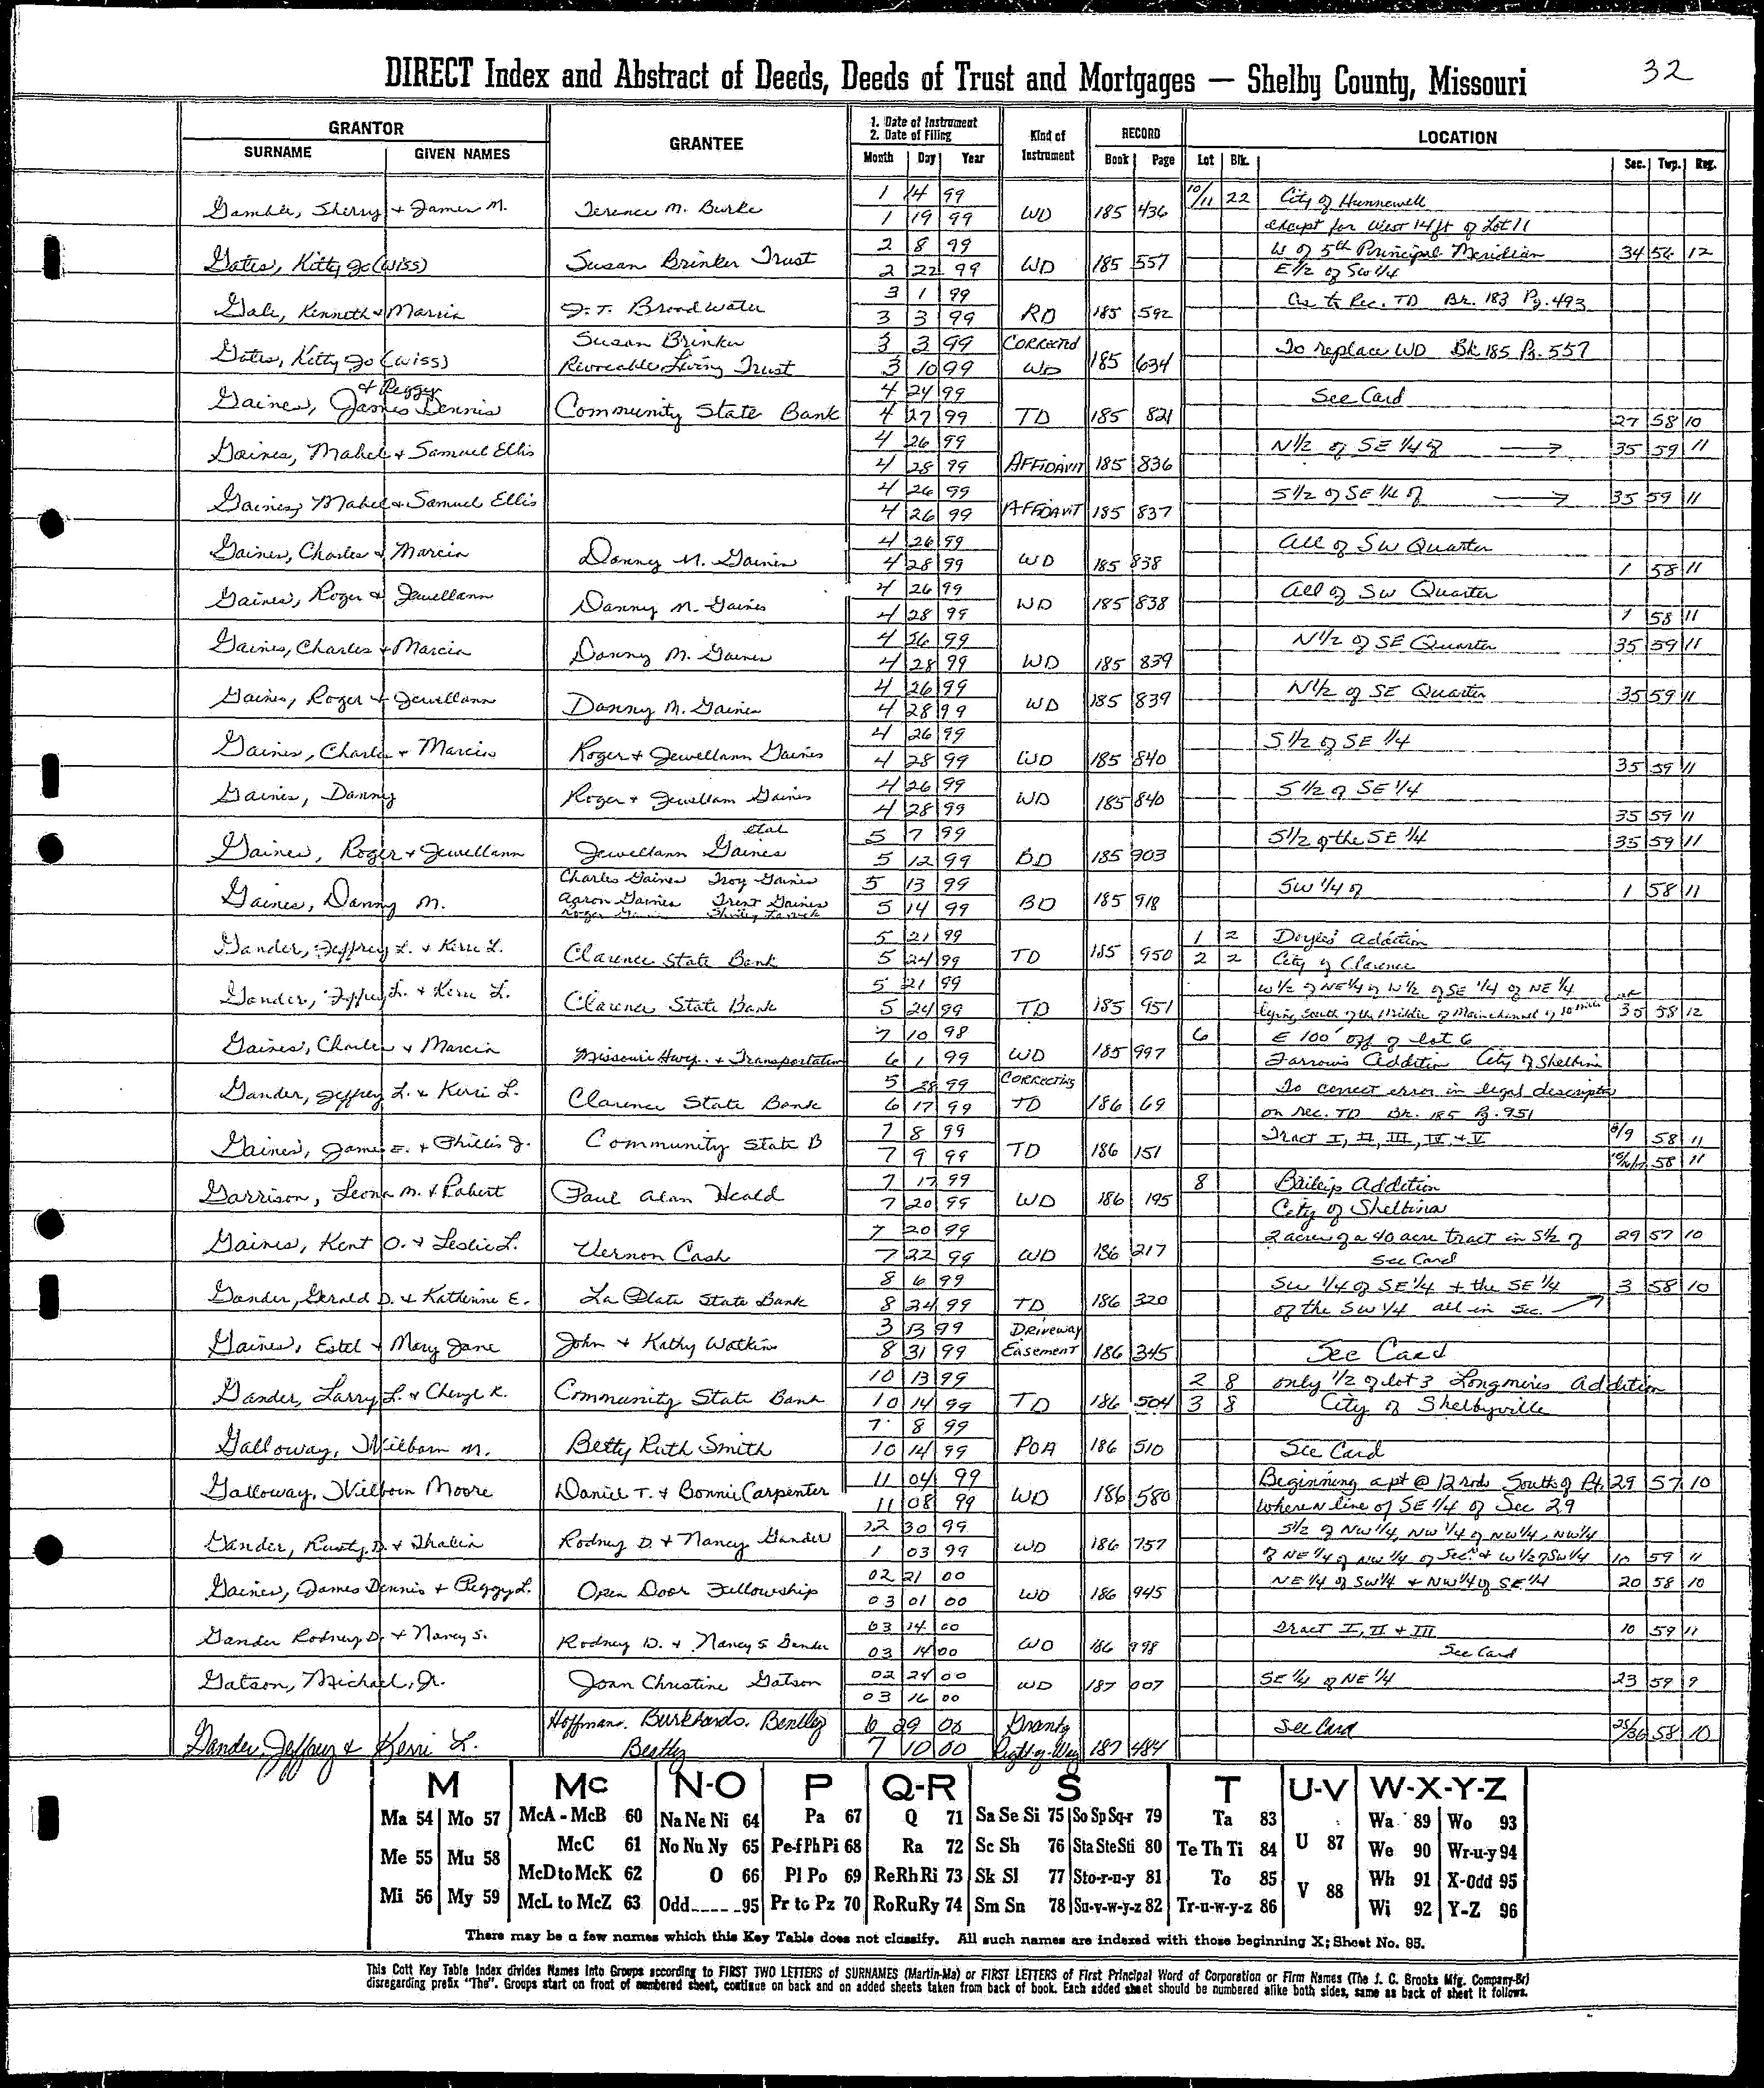 DIRECT Index and Abstract of Deeds, Deeds of Trust and Mortgages — Shelby County, Missouri 32
GRANTOR GRANTEE 1. Date of Instrument 2. Date of Filing Kind of Instrument RECORD LOCATION
SURNAME GIVEN NAMES Month Day Year Book Page Lot Blk. Sec. Twp. Rg.
Gamble, Sherry & James M. Terence M. Burke 1 14 99 WD 185 436 10/11 22 City of Hunnewell
1 19 99 except for West 14 ft of Lot 11
Gates, Kitty Jo (Wiss) Susan Brinker Trust 2 8 99 WD 185 557 W of 5th Principal Meridian 34 56 12
2 22 99 E 1/2 of SW 1/4
Gale, Kenneth & Marcia J. T. Broadwater 3 1 99 RD 185 592 to Rec. TD Bk. 183 Pg. 493
3 3 99
Gates, Kitty Jo (Wiss) Susan Brinker 3 3 99 CORRECTED To replace WD Bk 185 Pg. 557
Rivocable Living Trust 3 10 99 WD 185 634
Gaines, James Dennis & Peggy Community State Bank 4 24 99 See Card
4 27 99 TD 185 821 27 58 10
Gaines, Mabel & Samuel Ellis 4 26 99 N 1/2 of SE 1/4 of → 35 59 11
4 28 99 AFFIDAVIT 185 836
Gaines, Mabel & Samuel Ellis 4 26 99 S 1/2 of SE 1/4 of → 35 59 11
4 26 99 AFFIDAVIT 185 837
Gaines, Charles & Marcia Danny M. Gaines 4 26 99 All of SW Quarter
4 28 99 WD 185 838 1 58 11
Gaines, Roger & Jewellann Danny M. Gaines 4 26 99 All of SW Quarter
4 28 99 WD 185 838 1 58 11
Gaines, Charles & Marcia Danny M. Gaines 4 26 99 N 1/2 of SE Quarter 35 59 11
4 28 99 WD 185 839
Gaines, Roger & Jewellann Danny M. Gaines 4 26 99 N 1/2 of SE Quarter 35 59 11
4 28 99 WD 185 839
Gaines, Charles & Marcia Roger & Jewellann Gaines 4 26 99 S 1/2 of SE 1/4
4 28 99 WD 185 840 35 59 11
Gaines, Danny Roger & Jewellann Gaines 4 26 99 S 1/2 of SE 1/4
4 28 99 WD 185 840 35 59 11
Gaines, Roger & Jewellann Jewellann Gaines etal 5 7 99 S 1/2 of the SE 1/4 35 59 11
5 12 99 BD 185 903
Gaines, Danny M. Charles Gaines Troy Gaines 5 13 99 SW 1/4 of 1 58 11
Aaron Gaines Trent Gaines 5 14 99 BD 185 918
Gander, Jeffrey L. & Kerri L. Clarence State Bank 5 21 99 1 2 Doyles' Addition
5 24 99 TD 185 950 2 2 City of Clarence
Gander, Jeffrey L. & Kerri L. Clarence State Bank 5 21 99 W 1/2 of NE 1/4 of N 1/2 of SE 1/4 of NE 1/4
5 24 99 TD 185 951 lying South of the Middle of Main channel of 35 58 12
Gaines, Charles & Marcia Missouri Hwy. & Transportation 7 10 98 6 E 100' off of lot 6
6 1 99 WD 185 997 Farrows Addition City of Shelbina
Gander, Jeffrey L. & Kerri L. Clarence State Bank 5 28 99 CORRECTING To correct error in legal description
6 17 99 TD 186 69 on rec. TD Bk. 185 Pg. 951
Gaines, James E. & Phillis J. Community State B 7 8 99 Tract I, II, III, IV & V 8/9 58 11
7 9 99 TD 186 151 58 11
Garrison, Leona M. & Robert Paul Alan Heald 7 17 99 8 Baileys Addition
7 20 99 WD 186 195 City of Shelbina
Gaines, Kent O. & Leslie L. Vernon Cash 7 20 99 2 acres of a 40 acre tract in S 1/2 of 29 57 10
7 22 99 WD 186 217 See Card
Gander, Gerald D. & Katherine E. La Plata State Bank 8 6 99 SW 1/4 of SE 1/4 & the SE 1/4 3 58 10
8 24 99 TD 186 320 of the SW 1/4 all in Sec. →
Gaines, Estel & Mary Jane John & Kathy Watkins 3 13 99 DRIVEWAY
8 31 99 EASEMENT 186 345 See Card
Gander, Larry L. & Cheryl K. Community State Bank 10 13 99 2 8 only 1/2 of lot 3 Longmires Addition
10 14 99 TD 186 504 3 8 City of Shelbyville
Galloway, Wilborn M. Betty Ruth Smith 7 8 99
10 14 99 POA 186 510 See Card
Galloway, Wilborn Moore Daniel T. & Bonnie Carpenter 11 04 99 Beginning a pt @ 12 rods South of Pt. 29 57 10
11 08 99 WD 186 580 Where N line of SE 1/4 of Sec 29
Gander, Rusty D. & Thalia Rodney D. & Nancy Gander 12 30 99 S 1/2 of NW 1/4, NW 1/4 of NW 1/4, NW 1/4
1 03 99 WD 186 757 of NE 1/4 of NW 1/4 of Sec. & W 1/2 of SW 1/4 10 59 11
Gaines, James Dennis & Peggy L. Open Door Fellowship 02 21 00 NE 1/4 of SW 1/4 & NW 1/4 of SE 1/4 20 58 10
03 01 00 WD 186 945
Gander Rodney D. & Nancy S. Rodney D. & Nancy S Gander 03 14 00 Tract I, II & III 10 59 11
03 14 00 WD 186 998 See Card
Gatson, Michael, Jr. Joan Christine Gatson 02 24 00 SE 1/4 of NE 1/4 23 59 9
03 16 00 WD 187 007
Gander, Jeffrey & Kerri L. Hoffmans. Burkhards. Bentley 6 29 00 Grants See Card 25/36 58 10
Bentley 7 10 00 Right-of-Way 187 484
M Mc N-O P Q-R S T U-V W-X-Y-Z
Ma 54 Mo 57 McA - McB 60 Na Ne Ni 64 Pa 67 Q 71 Sa Se Si 75 So Sp Sq-r 79 Ta 83 U 87 Wa 89 Wo 93
Me 55 Mu 58 McC 61 No Nu Ny 65 Pe-f Ph Pi 68 Ra 72 Sc Sh 76 Sta Ste Sti 80 Te Th Ti 84 We 90 Wr-u-y 94
McD to McK 62 O 66 Pl Po 69 Re Rh Ri 73 Sk Sl 77 Sto-r-u-y 81 To 85 V 88 Wh 91 X-Odd 95
Mi 56 My 59 McL to McZ 63 Odd 95 Pr to Pz 70 Ro Ru Ry 74 Sm Sn 78 Su-v-w-y-z 82 Tr-u-w-y-z 86 Wi 92 Y-Z 96
There may be a few names which this Key Table does not classify. All such names are indexed with those beginning X; Sheet No. 95.
This Cott Key Table Index divides Names into Groups according to FIRST TWO LETTERS of SURNAMES (Martin-Ma) or FIRST LETTERS of First Principal Word of Corporation or Firm Names (The J. C. Brooks Mfg. Company-Br)
disregarding prefix "The". Groups start on front of numbered sheet, continue on back and on added sheets taken from back of book. Each added sheet should be numbered alike both sides, same as back of sheet it follows.